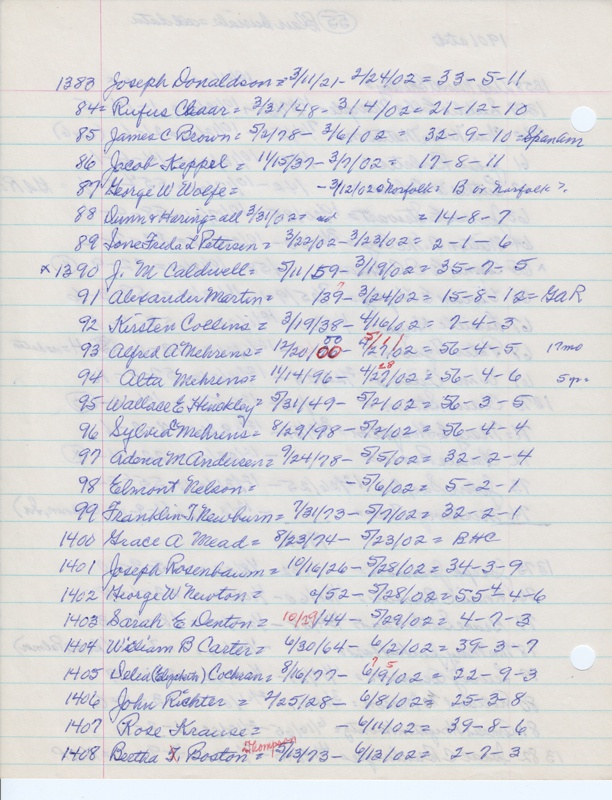 1383 Joseph Donaldson = 3/11/21 - 2/24/02 = 33-5-11
84 = Rufus Chaar = 3/31/48 - 3/4/02 = 21-12-10
85 James C Brown = 5/2/78 - 3/6/02 = 32-9-10 = Spanam
86 Jacob Keppel = 11/15/37 - 3/7/02 = 17-8-11
87 George W Wolfe = - 3/12/02 @ Norfolk = B in Norfolk ?.
88 Dunn & Haring = all 3/31/02 = = 14-8-7
89 Ione Freda L Petersen = 3/22/02 - 3/23/02 = 2-1-6
x 1390 J. M Caldwell = 5/11/59 - 3/19/02 = 35-7-5
91 Alexander Martin = /39 ? - 3/24/02 = 15-8-12 = GaR
92 Kirsten Collins = 3/19/38 - 4/16/02 = 7-4-3
93 Alfred A Mehrens = 12/20/00 - 4/27/02 = 56-4-5 17 mo
94 Alta Mehrens = 11/14/96 - 4/27/02 = 56-4-6 5 yr
95 Wallace E Hinckley = 5/31/49 - 5/2/02 = 56-3-5
96 Sylvia Mehrens = 8/29/98 - 5/2/02 = 56-4-4
97 Adena M Andersen = 9/24/78 - 5/5/02 = 32-2-4
98 Elmont Nelson = - 5/6/02 = 5-2-1
99 Franklin T. Newburn = 7/31/73 - 5/7/02 = 32-2-1
1400 Grace A Mead = 8/23/74 - 5/23/02 = BHC
1401 Joseph Rosenbaum = 10/16/26 - 5/28/02 = 34-3-9
1402 George W Newton = /52 - 5/28/02 = 55-4-6
1403 Sarah E Denton = 10/29/44 - 5/29/02 = 4-7-3
1404 William B Carter = 6/30/64 - 6/2/02 = 39-3-7
1405 Delia (Elizabeth) Cochran = 8/16/77 - 6/9/02 = 22-9-3
1406 John Richter = 2/25/28 - 6/8/02 = 25-3-8
1407 Rose Krause = - 6/11/02 = 39-8-6
1408 Bertha T. Thompson Boston = 5/13/73 - 6/13/02 = 2-7-3